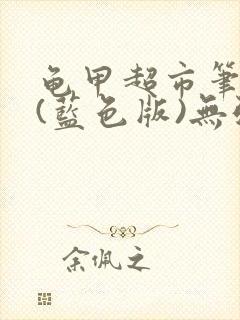 龟甲超市筆
(藍色版)無
余佩之